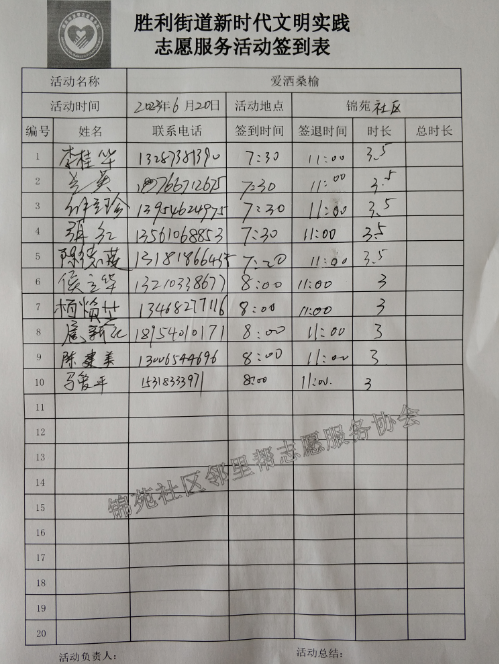 胜利街道新时代文明实践
志愿服务活动签到表
活动名称 爱洒桑榆
活动时间 2023年6月20日 活动地点 锦苑社区
编号 姓名 联系电话 签到时间 签退时间 时长 总时长
1 李桂华 7:30 11:00 3.5
2 7:30 11:00 3.5
3 13954624975 7:30 11:00 3.5
4 13561068853 7:30 11:00 3.5
5 11:00 3.5
6 侯立华 13210338677 8:00 11:00 3
7 13468277116 8:00 11:00 3
8 18954010171 8:00 11:00 3
9 陈建美 13006544696 8:00 11:00 3
10 马爱平 15318333971 8:00 11:00 3
11
12
13
14
15
16
17
18
19
20
锦苑社区邻里帮志愿服务协会
活动负责人: 活动总结: